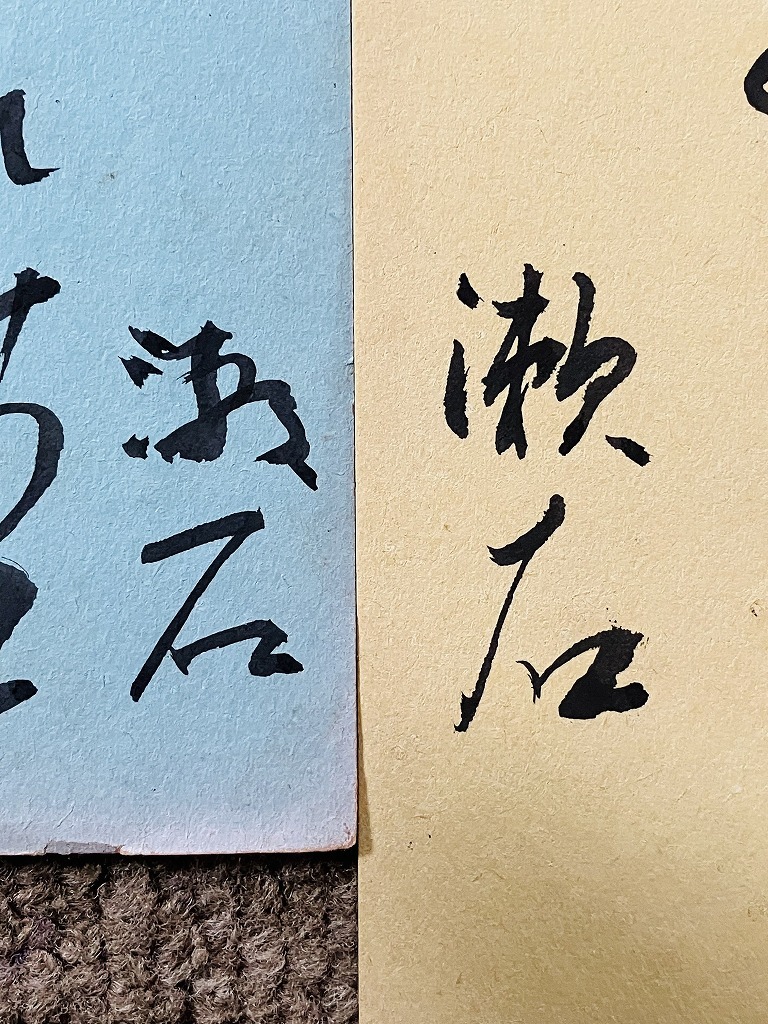 漱石
漱石